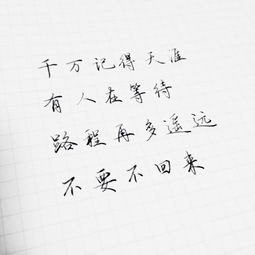 千万记得天涯
有人在等待
路程再多遥远
不要不回来